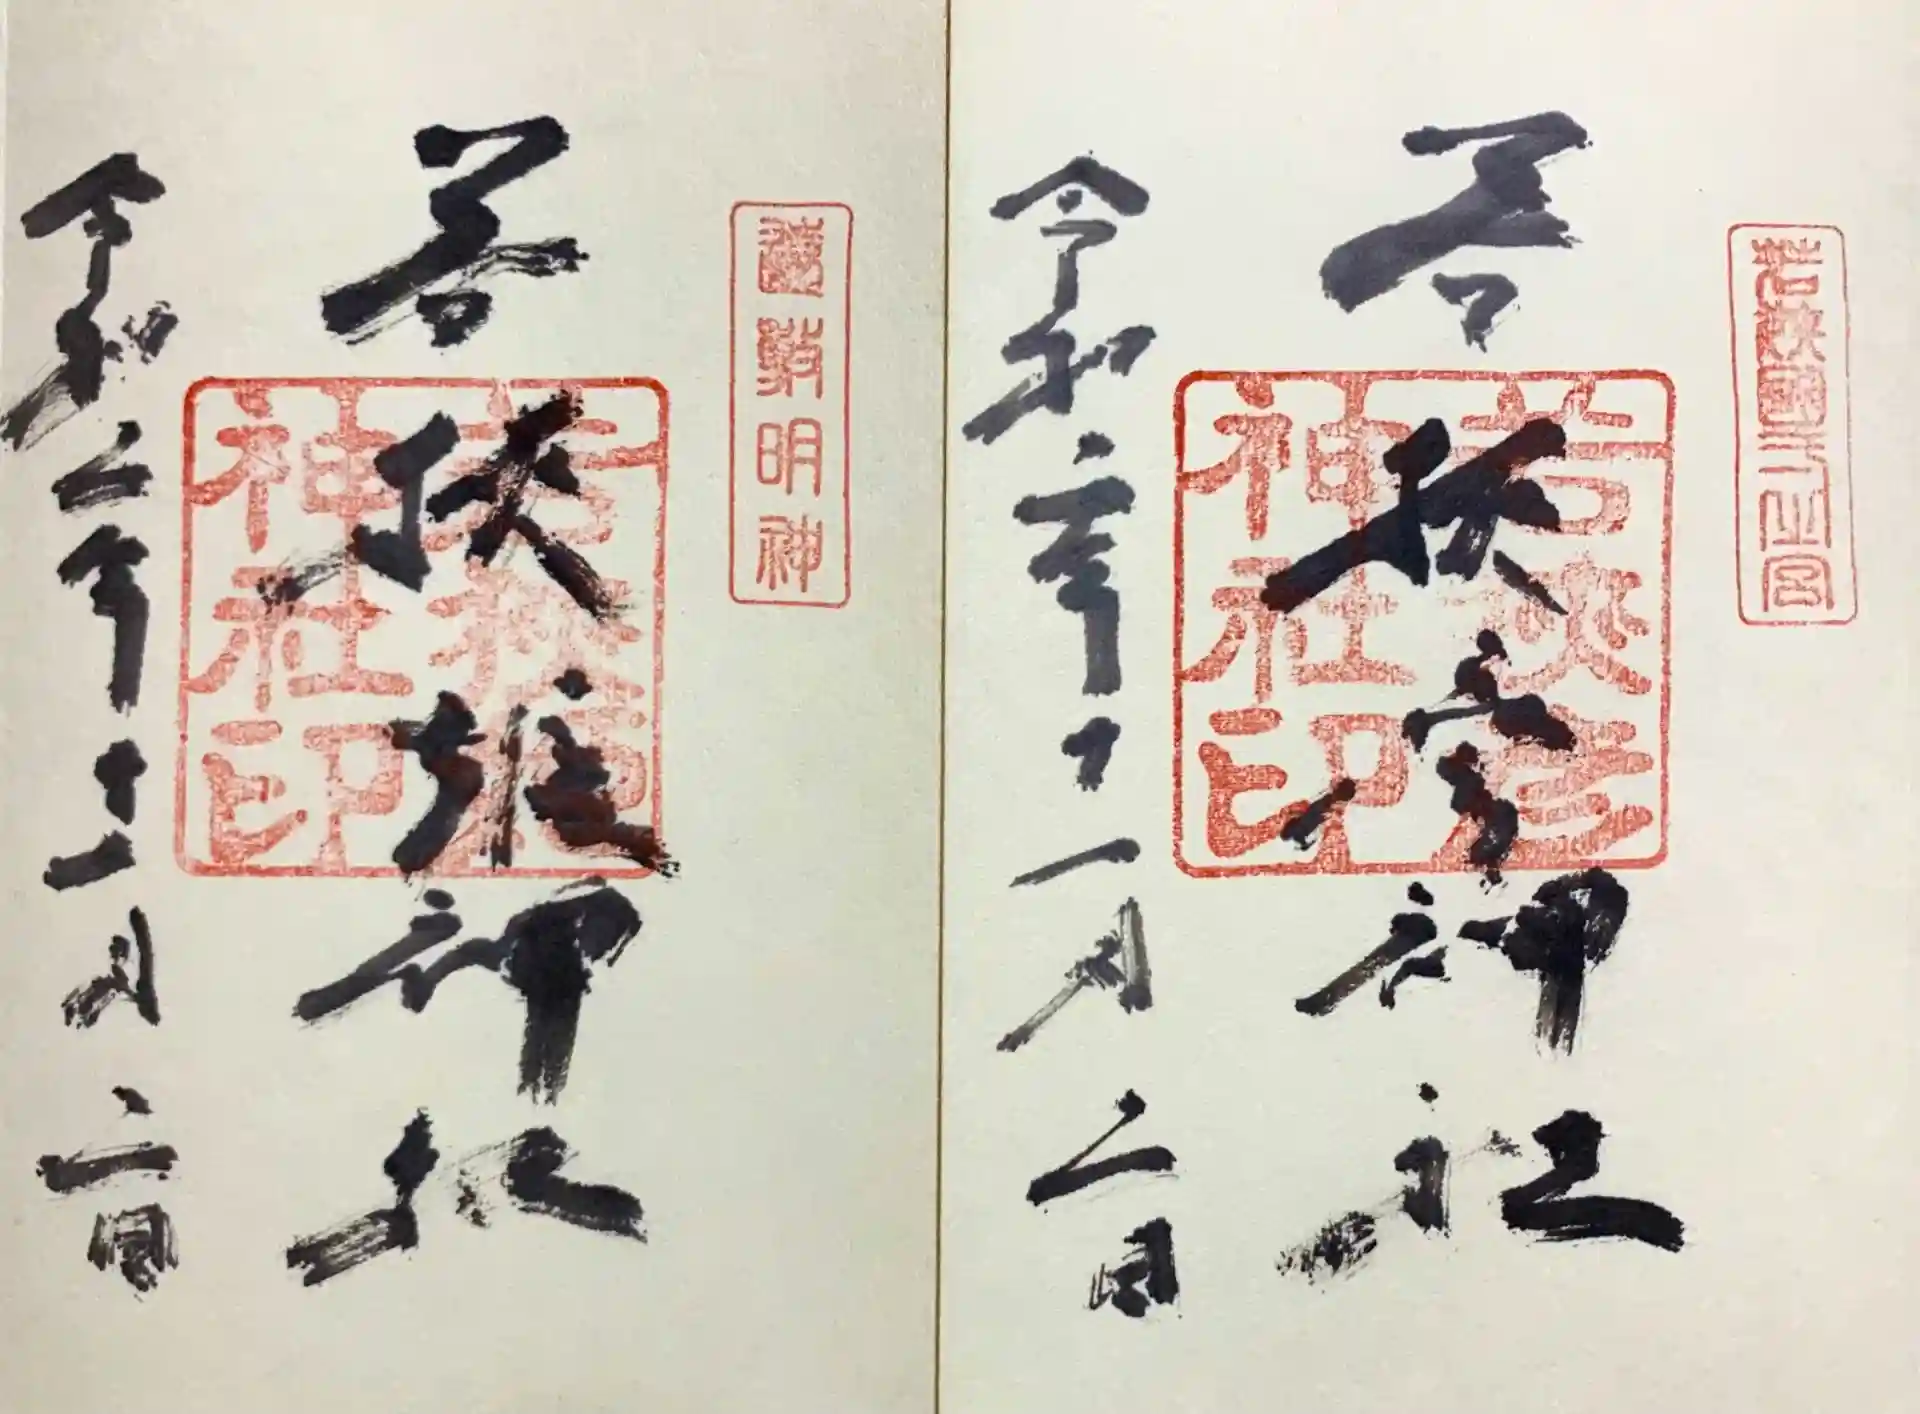 若狭国一之宮
若狭彦神社
若狭彦神社印
令和二年十一月二日
遠敷明神
若狭姫神社
若狭姫神社印
令和二年十一月二日